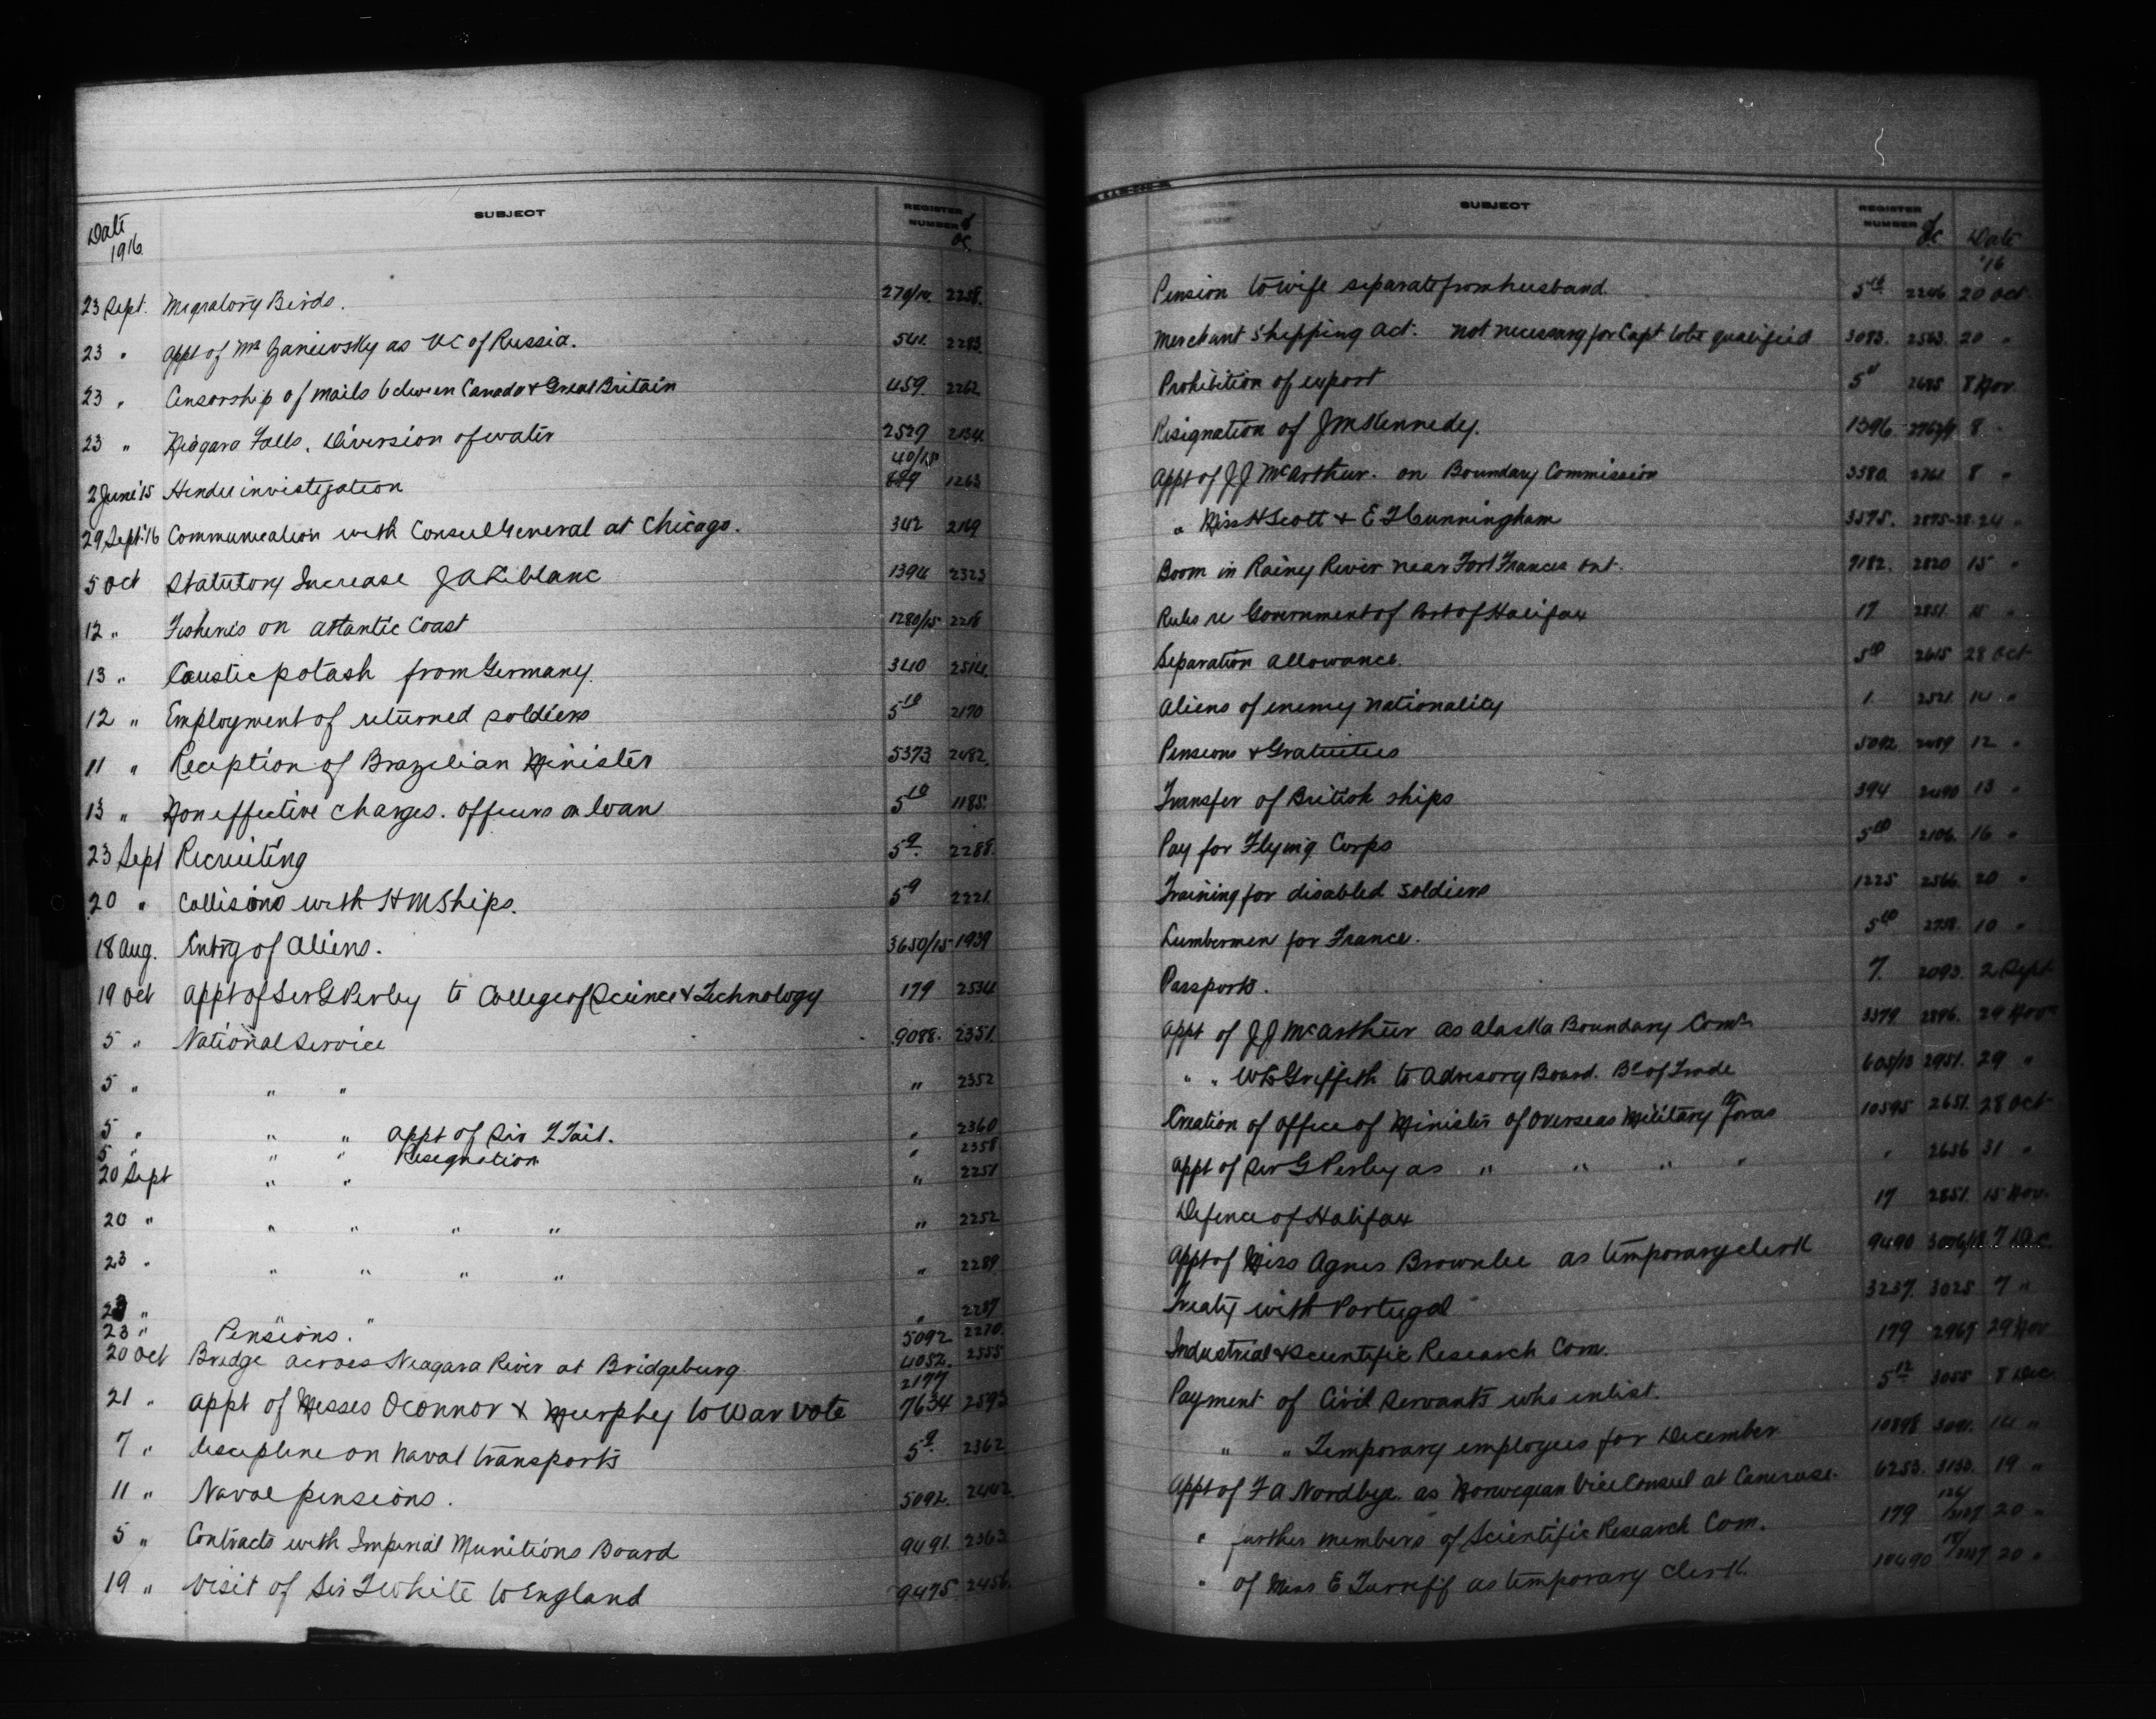 Date
1916
SUBJECT
REGISTER
NUMBER
OC
23 Sept. Migratory Birds. 270/14. 2258.
23 " Appt of Mr Zaniewsky as VC of Russia. 541. 2283.
23 " Censorship of mails between Canada & Great Britain 459. 2262
23 " Niagara Falls. Diversion of water 2529 2134.
40/15
2 June '15 investigation 1263
29 Sept. '16 Communication with Consul General at Chicago. 342 2119
5 Oct Statutory Increase J A Leblanc 1394 2323
12 " Fisheries on Atlantic Coast 1280/15 2216
13 " Caustic potash from Germany. 340 2514.
12 " Employment of returned soldiers 5 10 2170
11 " Reception of Brazilian Minister 5373 2482.
13 " Non effective charges. Officers on loan 5 10 1185.
23 Sept Recruiting 5 9. 2288.
20 " Collisions with HM Ships. 5 9 2221.
18 Aug. Entry of Aliens. 3650/15 1939
19 Oct Appt of Sir G Perley to College of Science & Technology 179 2534
5 " National Service 9088. 2351.
5 " " " " 2352
5 " " " Appt of Sir T Tait. " 2360
5 " " " Resignation " 2358
20 Sept " " " 2251
20 " " " " " " 2252
23 " " " " " " 2289
23 " " " " 2287
23 " Pensions. 5092 2270.
20 Oct Bridge across Niagara River at Bridgeburg. 4052. 2555
2177
21 " Appt of Messes OConnor & Murphy to War Vote 7634 2593
7 " Discipline on Naval transports 5 9. 2362
11 " Naval pensions. 5092. 2442
5 " Contracts with Imperial Munitions Board 9491. 2363
19 " Visit of Sir T White to England 9475. 2456.
SUBJECT
REGISTER
NUMBER
OC
Date
'16
Pension to wife separate from husband 5 10 2246 20 Oct.
Merchant Shipping Act. Not necessary for Capt to be qualified 3083. 2563. 20 "
Prohibition of export 5 11 2685 8 Nov
Resignation of J M Kennedy. 1396 8 "
Appt of J J McArthur. on Boundary Commission 3580. 2761. 8 "
" Miss H Scott & E F Cunningham 3575. 24 "
Boom in Rainy River near Fort Frances Ont. 7182. 2820 15 "
Rules re Government of Port of Halifax 17 2851. 15 "
Separation allowance. 5 10 2615 28 Oct
Aliens of enemy nationality 1. 2521. 14 "
Pensions & Gratuities 5092. 2489 12 "
Transfer of British ships 394 2490 13 "
Pay for Flying Corps 5 10 2106. 16 "
Training for disabled soldiers 1225 2566. 20 "
Lumbermen for France. 5 10 2758. 10 "
Passports. 7. 2093. 2 Sept
Appt of J J McArthur as Alaska Boundary Comr 3379 2896. 29 Nov
" " W L Griffith to Advisory Board. Bd of Trade 605/13 2951. 29 "
Creation of office of Minister of Overseas Military Forces 10595 2651. 28 Oct
Appt of Sir G Perley as " " " " " 2656 31 "
Defence of Halifax 17 2851. 15 Nov.
Appt of Miss Agnes Brownlee as temporary clerk 9490 7 Dec.
Treaty with Portugal 3237. 3025 7 "
Industrial & Scientific Research Com. 179 2967 29 Nov
Payment of Civil Servants who enlist. 5 12 3055 8 Dec.
" " Temporary employees for December 10898 3091. 14 "
Appt of F A Nordbye as Norwegian Vice Consul at Camrose. 6253. 3130. 19 "
" further members of Scientific Research Com. 179 20 "
" of Miss E Turriff as temporary clerk. 10490 20 "